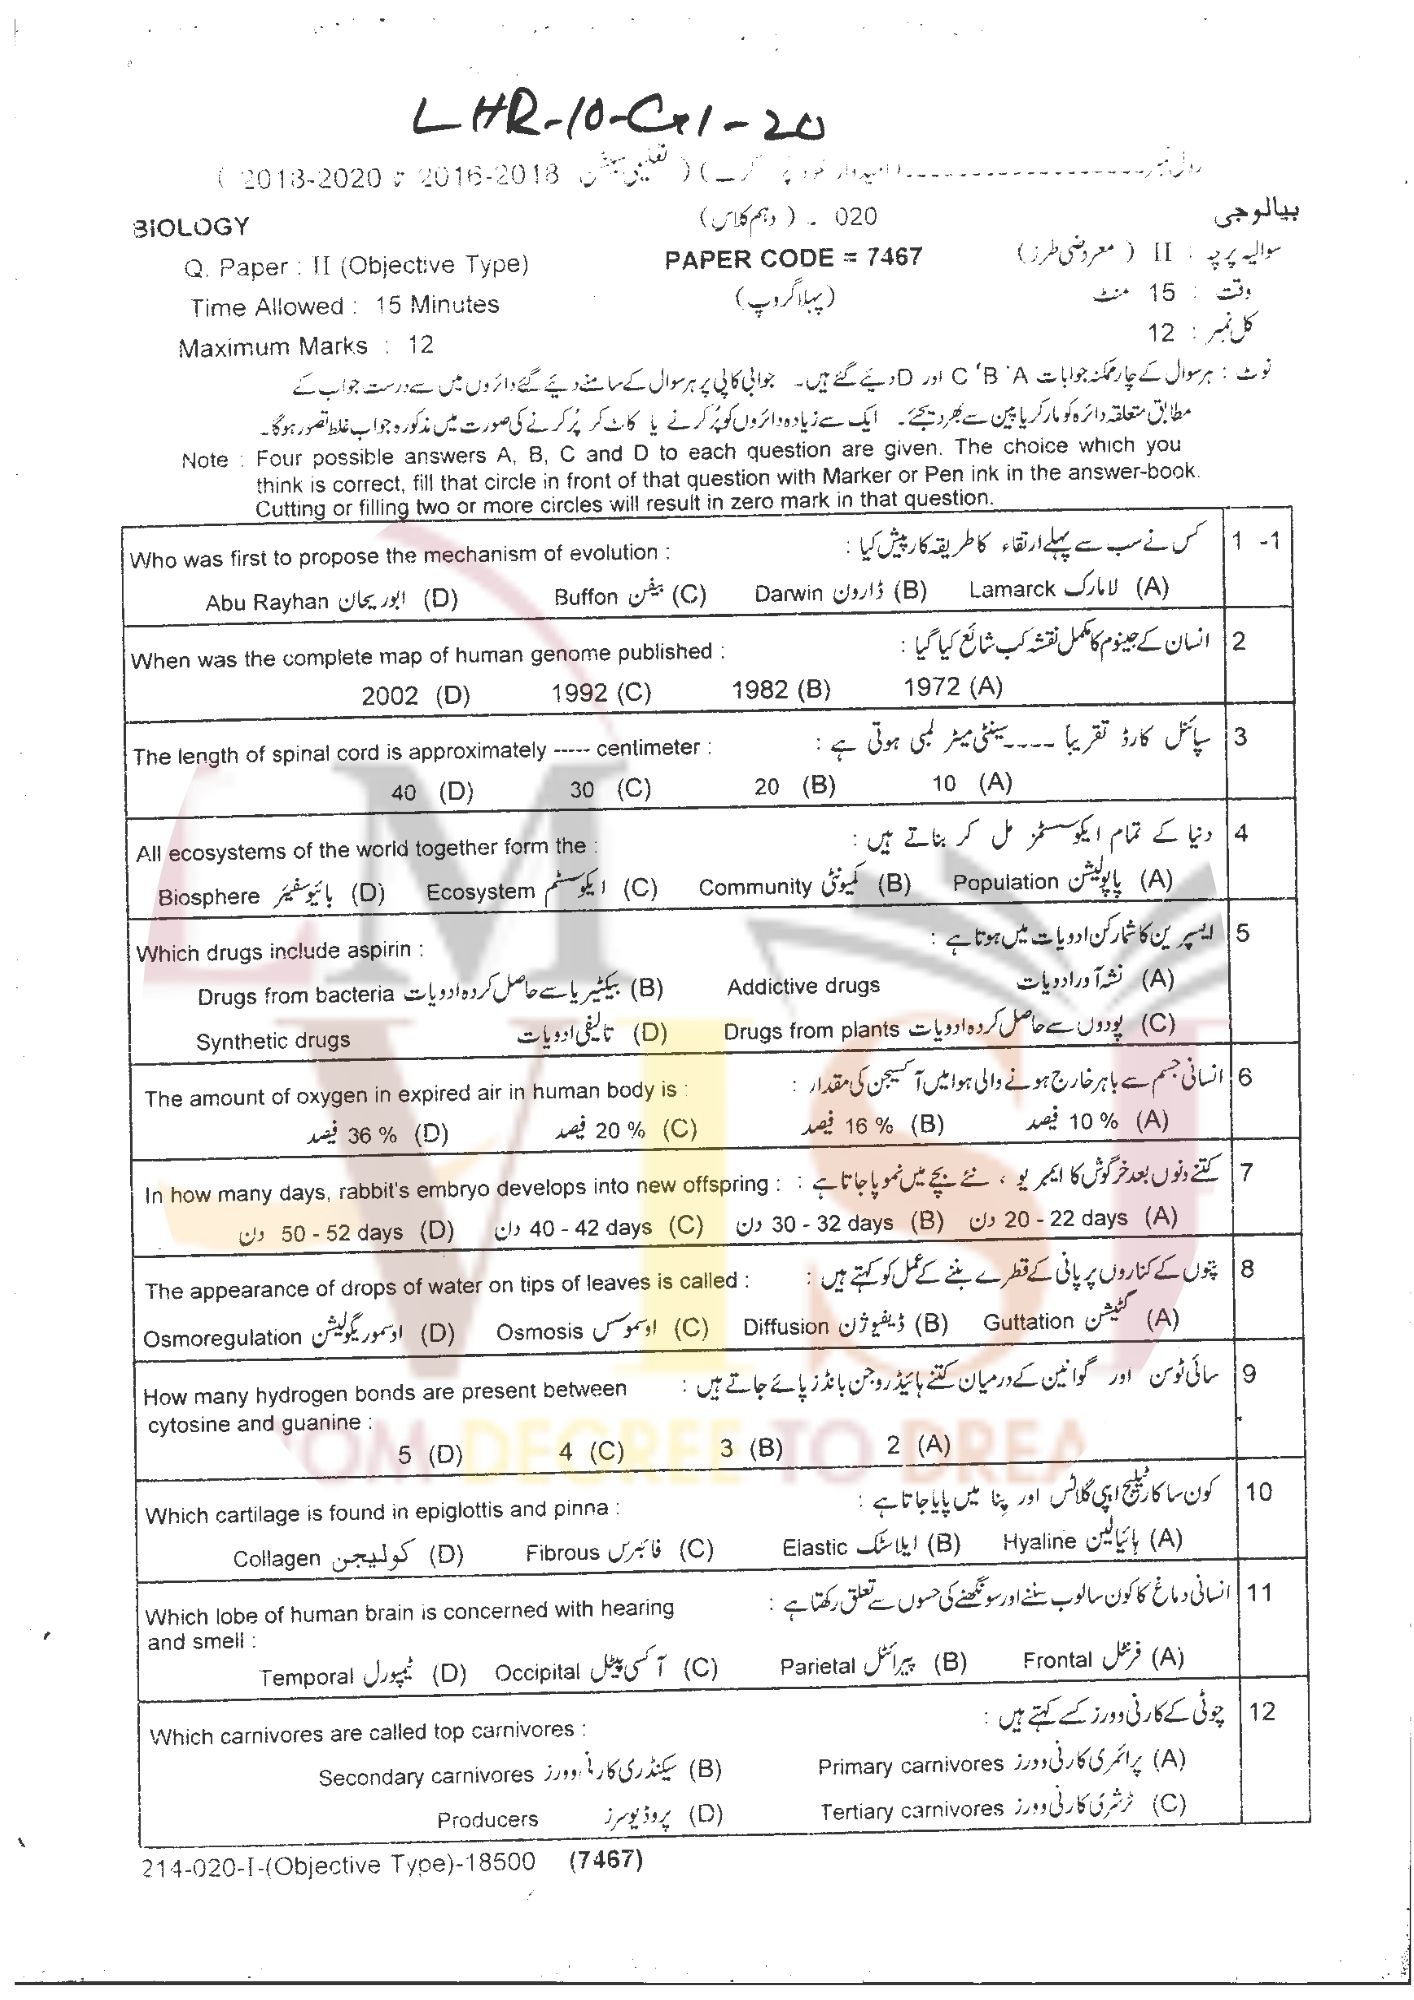 LHR-10-G1-20
رول نمبر ------------------ (امیدوار خود پُر کرے) ( تعلیمی سیشن 2016-2018 تا 2018-2020 )
BIOLOGY 020 - (دہم کلاس) بیالوجی
Q. Paper : II (Objective Type) PAPER CODE = 7467 سوالیہ پرچہ : II ( معروضی طرز )
Time Allowed : 15 Minutes (پہلا گروپ) وقت : 15 منٹ
Maximum Marks : 12 کل نمبر : 12
نوٹ : ہر سوال کے چار ممکنہ جوابات A ‘B ‘C اور D دیئے گئے ہیں۔ جوابی کاپی پر ہر سوال کے سامنے دیئے گئے دائروں میں سے درست جواب کے
مطابق متعلقہ دائرہ کو مارکر یا پین سے بھر دیجئے۔ ایک سے زیادہ دائروں کو پُر کرنے یا کاٹ کر پُر کرنے کی صورت میں مذکورہ جواب غلط تصور ہوگا۔
Note : Four possible answers A, B, C and D to each question are given. The choice which you
think is correct, fill that circle in front of that question with Marker or Pen ink in the answer-book.
Cutting or filling two or more circles will result in zero mark in that question.
1 -1 کس نے سب سے پہلے ارتقاء کا طریقہ کار پیش کیا : Who was first to propose the mechanism of evolution :
(A) لامارک Lamarck (B) ڈارون Darwin (C) بفن Buffon (D) ابوریحان Abu Rayhan
2 انسان کے جینوم کا مکمل نقشہ کب شائع کیا گیا : When was the complete map of human genome published :
(A) 1972 (B) 1982 (C) 1992 (D) 2002
3 سپائنل کارڈ تقریباً ---- سینٹی میٹر لمبی ہوتی ہے : The length of spinal cord is approximately ----- centimeter :
(A) 10 (B) 20 (C) 30 (D) 40
4 دنیا کے تمام ایکوسسٹمز مل کر بناتے ہیں : All ecosystems of the world together form the :
(A) پاپولیشن Population (B) کمیونٹی Community (C) ایکوسسٹم Ecosystem (D) بائیوسفیئر Biosphere
5 ایسپرین کا شمار کن ادویات میں ہوتا ہے : Which drugs include aspirin :
(A) نشہ آور ادویات Addictive drugs (B) بیکٹیریا سے حاصل کردہ ادویات Drugs from bacteria
(C) پودوں سے حاصل کردہ ادویات Drugs from plants (D) تالیفی ادویات Synthetic drugs
6 انسانی جسم سے باہر خارج ہونے والی ہوا میں آکسیجن کی مقدار : The amount of oxygen in expired air in human body is :
(A) 10 % فیصد (B) 16 % فیصد (C) 20 % فیصد (D) 36 % فیصد
7 کتنے دنوں بعد خرگوش کا ایمبریو ، نئے بچے میں نمو پا جاتا ہے : In how many days, rabbit's embryo develops into new offspring :
(A) 20 - 22 days دن (B) 30 - 32 days دن (C) 40 - 42 days دن (D) 50 - 52 days دن
8 پتوں کے کناروں پر پانی کے قطرے بننے کے عمل کو کہتے ہیں : The appearance of drops of water on tips of leaves is called :
(A) گٹیشن Guttation (B) ڈیفیوژن Diffusion (C) اوسموسس Osmosis (D) اوسموریگولیشن Osmoregulation
9 سائی ٹوسن اور گوانین کے درمیان کتنے ہائیڈروجن بانڈز پائے جاتے ہیں : How many hydrogen bonds are present between
cytosine and guanine :
(A) 2 (B) 3 (C) 4 (D) 5
10 کون سا کارٹیلیج اپی گلاٹس اور پنا میں پایا جاتا ہے : Which cartilage is found in epiglottis and pinna :
(A) ہائیالین Hyaline (B) ایلاسٹک Elastic (C) فائبرس Fibrous (D) کولیجن Collagen
11 انسانی دماغ کا کون سا لوب سننے اور سونگھنے کی حسوں سے تعلق رکھتا ہے : Which lobe of human brain is concerned with hearing
and smell :
(A) فرنٹل Frontal (B) پیرائٹل Parietal (C) آکسی پیٹل Occipital (D) ٹیمپورل Temporal
12 چوٹی کے کارنی وورز کسے کہتے ہیں : Which carnivores are called top carnivores :
(A) پرائمری کارنی وورز Primary carnivores (B) سیکنڈری کارنی وورز Secondary carnivores
(C) ٹرشری کارنی وورز Tertiary carnivores (D) پروڈیوسرز Producers
214-020-I-(Objective Type)-18500 (7467)
LM
VISI
OM DEGREE TO DREA